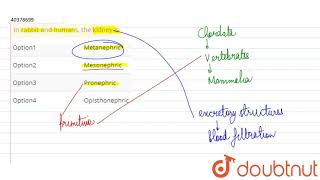 40378699
In rabbit and humans, the kidney
Option1 Metanephric
Option2 Mesonephric
Option3 Pronephric
Option4 Opisthonephric
primitive
Chordate
Vertebrates
Mammalia
excretory structures
blood filtration
doubtnut